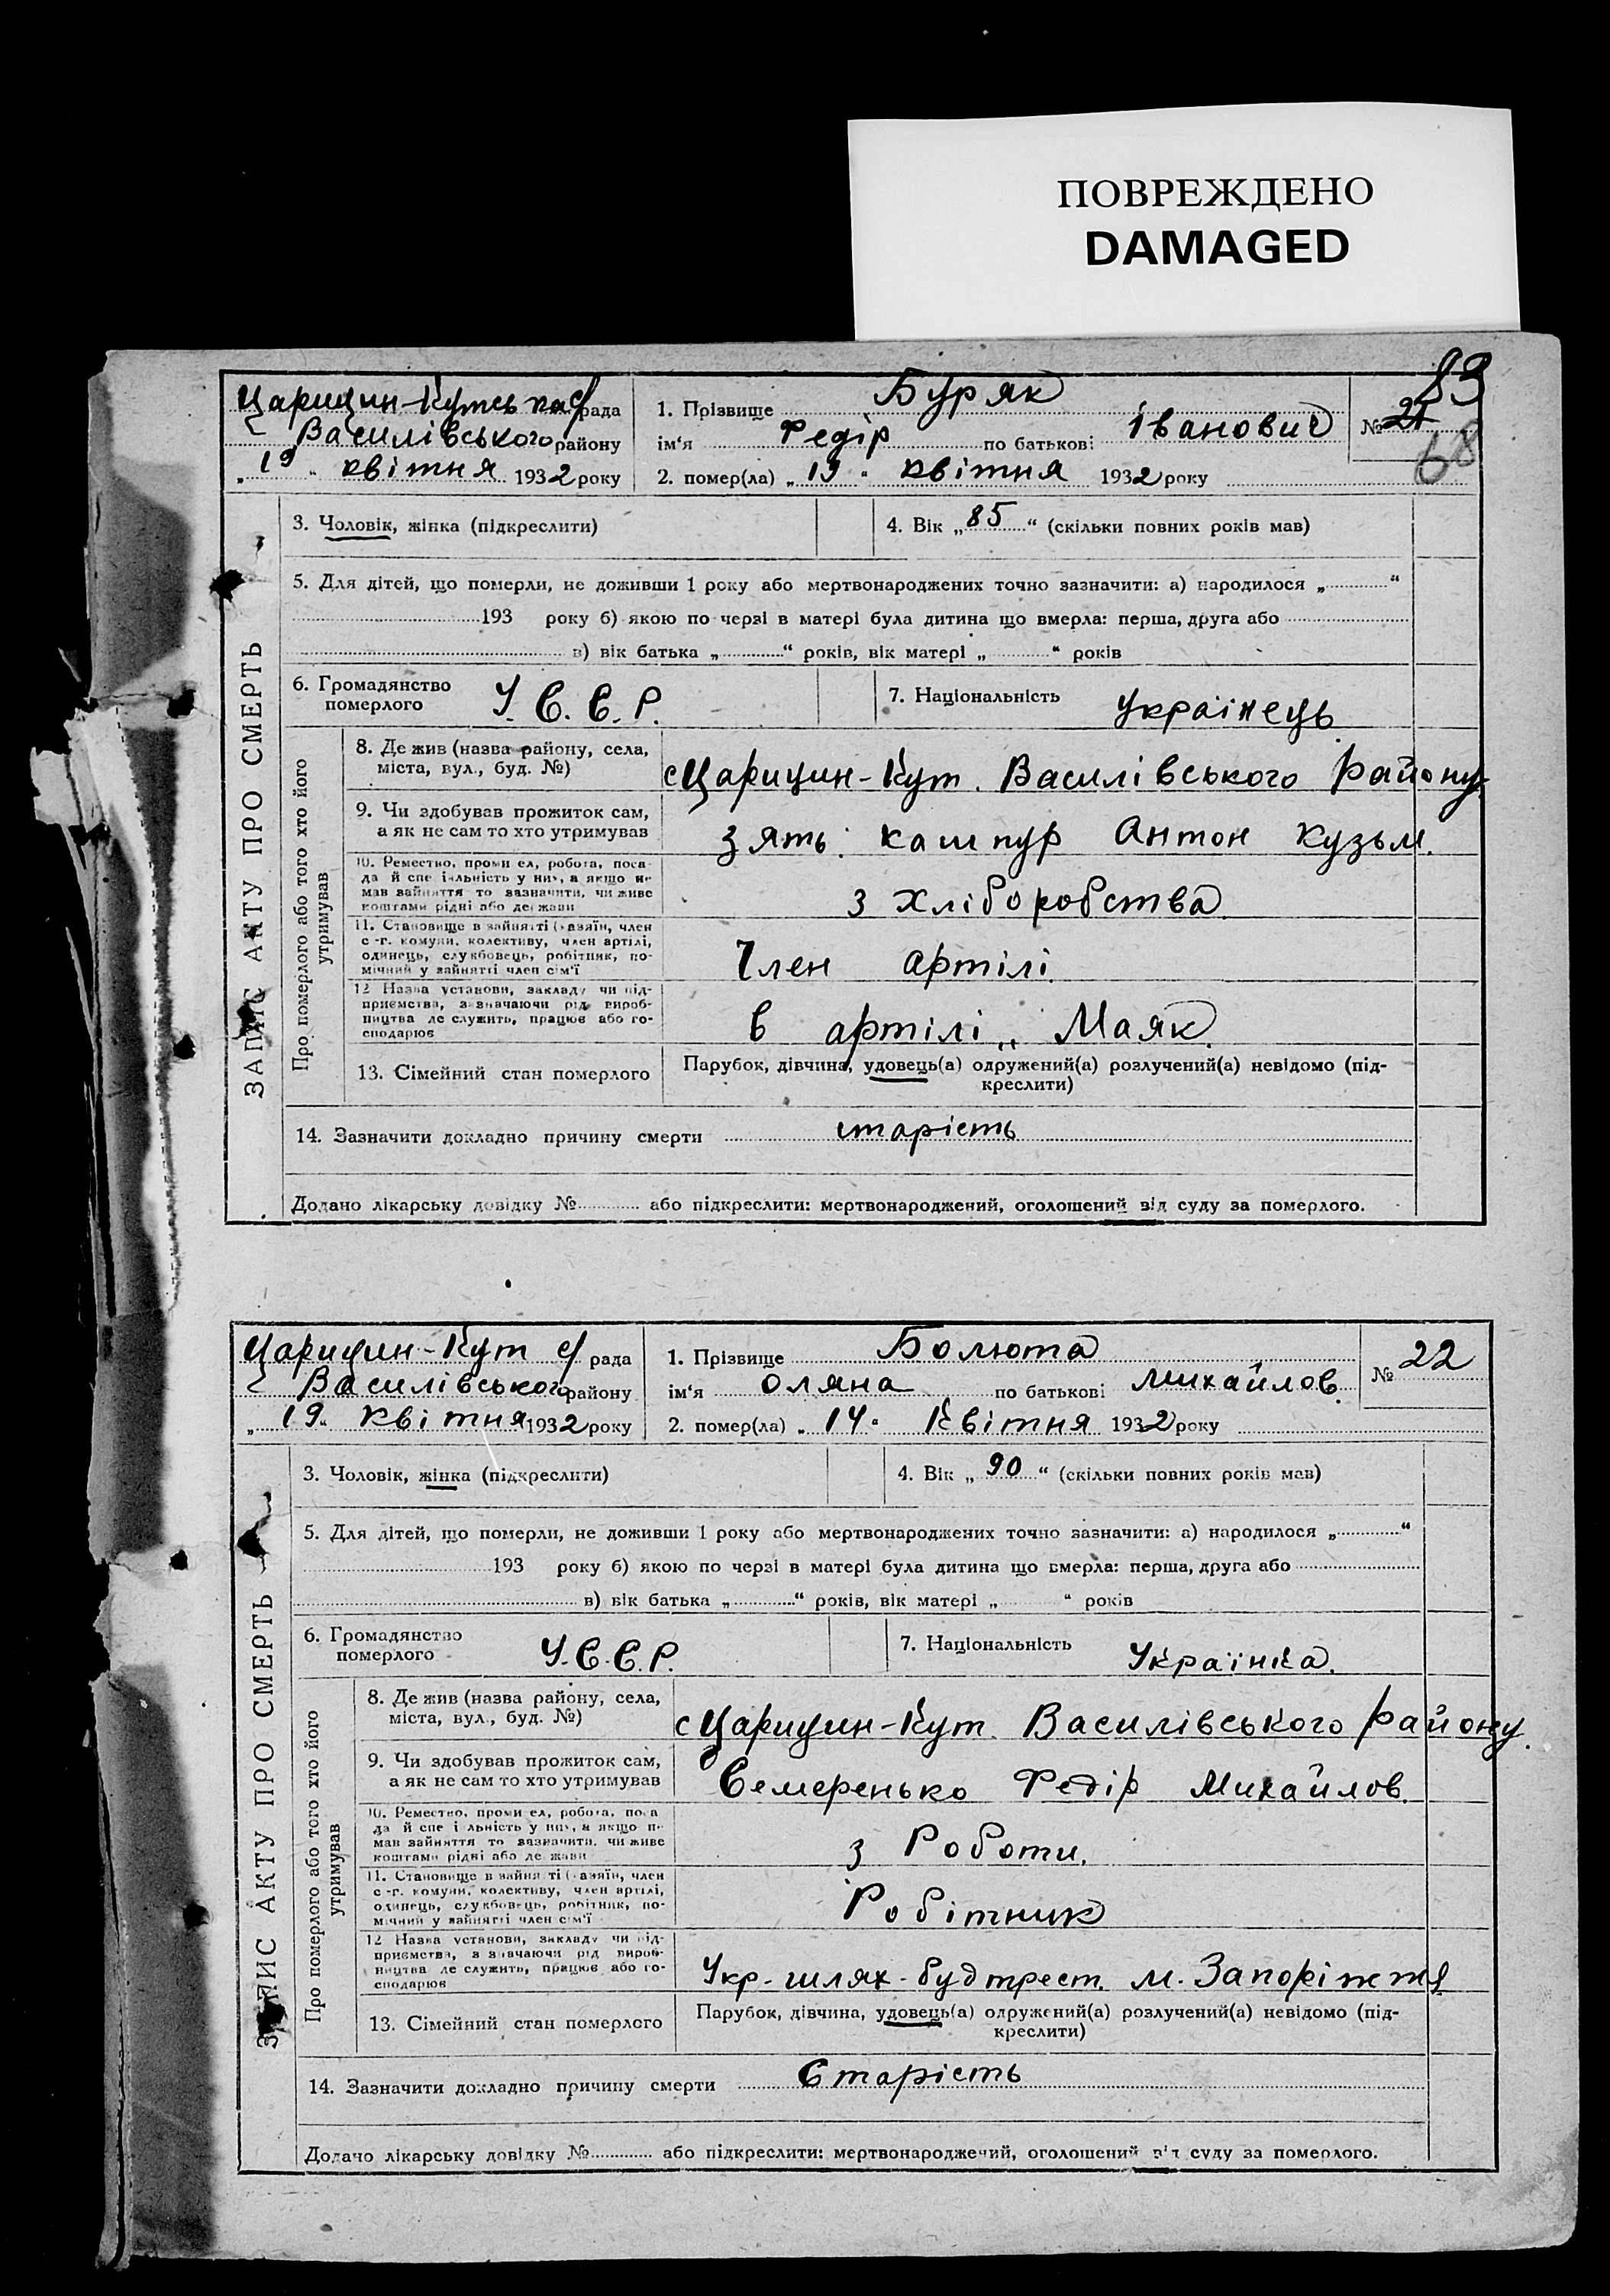 ПОВРЕЖДЕНО
DAMAGED
83
Царицин-Кутська с/рада
Василівського району
„19“ квітня 1932 року
1. Прізвище Буряк
ім‘я Федір по батькові: Іванович
2. помер(ла) „19“ квітня 1932 року
№ 21
68
ЗАПИС АКТУ ПРО СМЕРТЬ
3. Чоловік, жінка (підкреслити)
4. Вік „85“ (скільки повних років мав)
5. Для дітей, що померли, не доживши 1 року або мертвонароджених точно зазначити: а) народилося „ “
193 року б) якою по черзі в матері була дитина що вмерла: перша, друга або
в) вік батька „ “ років, вік матері „ “ років
6. Громадянство
померлого
У.С.С.Р.
7. Національність українець
Про померлого або того хто його
утримував
8. Де жив (назва району, села,
міста, вул., буд. №)
с Царицин-Кут. Василівського Району
9. Чи здобував прожиток сам,
а як не сам то хто утримував
зять: кашпур Антон Кузьм.
10. Ремество, промисел, робота, поса-
да й спеціяльність у них, а якщо не
мав зайняття то зазначити, чи живе
коштами рідні або держави
з хліборобства
11. Становище в зайнятті (хазяїн, член
с.-г. комуни, колективу, член артілі,
одинець, службовець, робітник, по-
мічний у зайнятті член сім‘ї
Член артілі
12 Назва установи, закладу чи під-
приємства, зазначаючи рід вироб-
ництва де служить, працює або го-
сподарює
в артілі „Маяк.
13. Сімейний стан померлого
Парубок, дівчина, удовець(а) одружений(а) розлучений(а) невідомо (під-
креслити)
14. Зазначити докладно причину смерти старість
Додано лікарську довідку № або підкреслити: мертвонароджений, оголошений від суду за померлого.
Царицин-Кут с/рада
Василівського району
„19“ Квітня 1932 року
1. Прізвище Болюта
ім‘я Оляна по батькові Михайлов.
2. помер(ла) „14“ Квітня 1932 року
№ 22
ЗАПИС АКТУ ПРО СМЕРТЬ
3. Чоловік, жінка (підкреслити)
4. Вік „90“ (скільки повних років мав)
5. Для дітей, що померли, не доживши 1 року або мертвонароджених точно зазначити: а) народилося „ “
193 року б) якою по черзі в матері була дитина що вмерла: перша, друга або
в) вік батька „ “ років, вік матері „ “ років
6. Громадянство
померлого
У.С.С.Р.
7. Національність Українка.
Про померлого або того хто його
утримував
8. Де жив (назва району, села,
міста, вул., буд. №)
с Царицин-Кут. Василівського Району.
9. Чи здобував прожиток сам,
а як не сам то хто утримував
Семеренько Федір Михайлов.
10. Ремество, промисел, робота, поса-
да й спеціяльність у них, а якщо не
мав зайняття то зазначити, чи живе
коштами рідні або держави
з Роботи.
11. Становище в зайнятті (хазяїн, член
с.-г. комуни, колективу, член артілі,
одинець, службовець, робітник, по-
мічний у зайнятті член сім‘ї
Робітник
12 Назва установи, закладу чи під-
приємства, зазначаючи рід вироб-
ництва де служить, працює або го-
сподарює
Укр-шлях-будтрест. м. Запоріжжя
13. Сімейний стан померлого
Парубок, дівчина, удовець(а) одружений(а) розлучений(а) невідомо (під-
креслити)
14. Зазначити докладно причину смерти Старість
Додано лікарську довідку № або підкреслити: мертвонароджений, оголошений від суду за померлого.